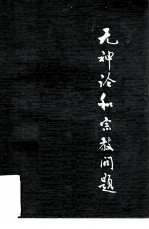 无神论和宗教问题